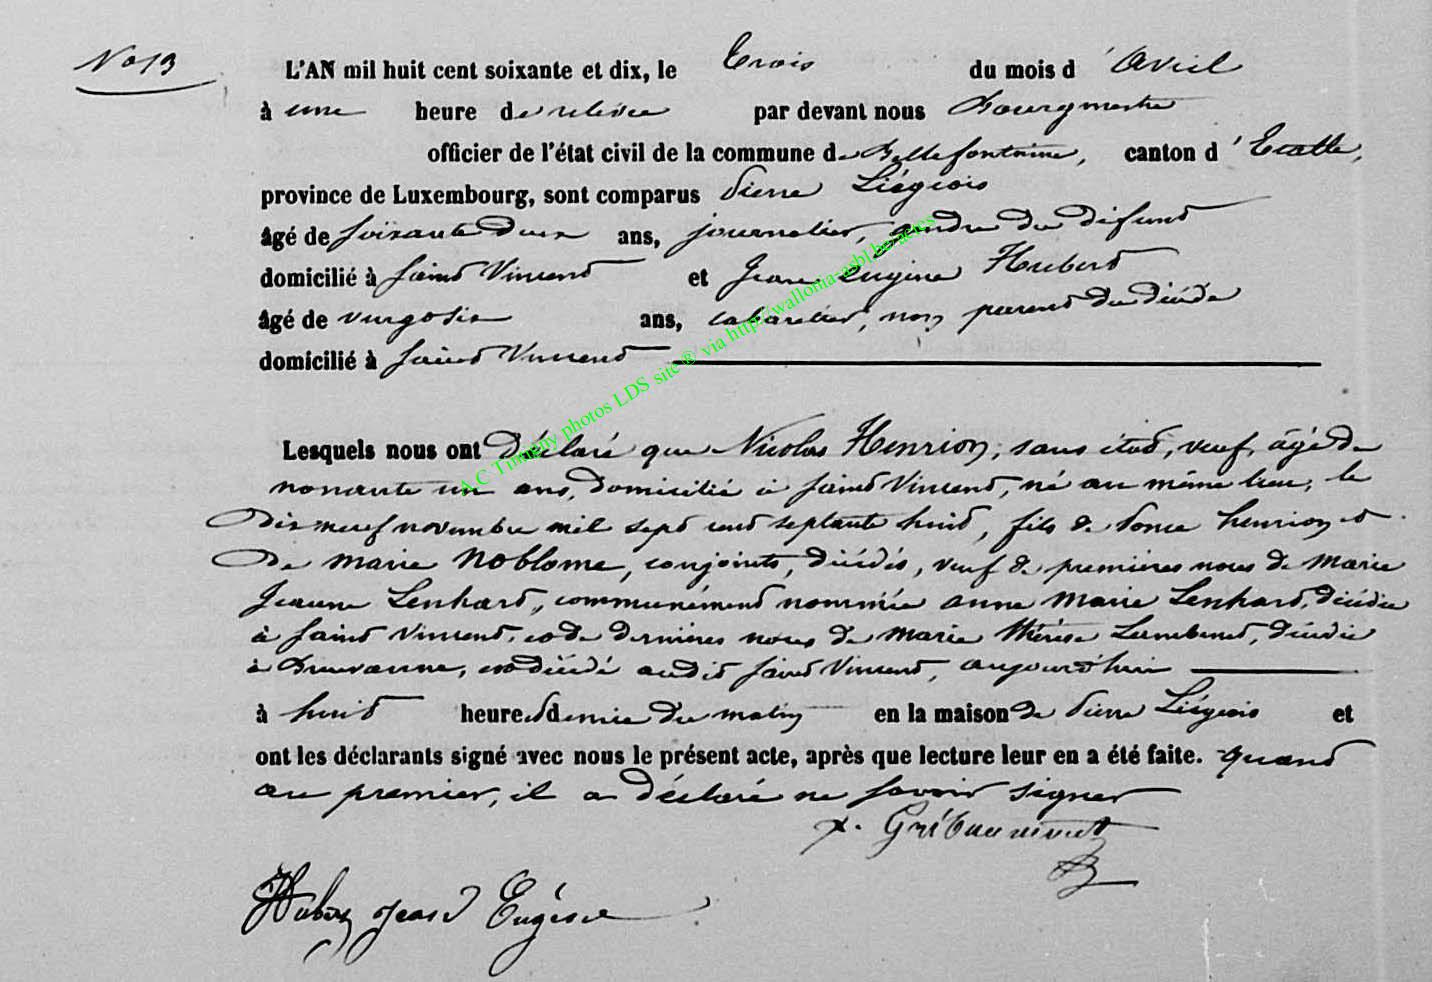 No 13
L'AN mil huit cent soixante et dix, le Trois du mois d'Avril
à une heure de relevée par devant nous Bourgmestre
officier de l'état civil de la commune de Bellefontaine, canton d'Etalle,
province de Luxembourg, sont comparus Pierre Liégeois
âgé de soixante deux ans, journalier, gendre du défunt
domicilié à Saint Vincent et Jean Eugène Hubert
âgé de vingt six ans, cabaretier, non parent du décédé
domicilié à Saint Vincent
Lesquels nous ont Déclaré que Nicolas Henrion, sans état, veuf, âgé de
nonante un ans, domicilié à Saint Vincent, né au même lieu, le
dix neuf novembre mil sept cent septante huit, fils de Ponce henrion et
de marie Noblome, conjoints, décédés, veuf de premières noces de Marie
Jeanne Lenhard, communément nommée anne Marie Lenhard, décédée
à Saint Vincent, et de dernières noces de Marie Thérèse Lambinet, décédée
à Breuvanne, est décédé audit Saint Vincent, aujourd'hui
à huit heures et demie du matin en la maison de Pierre Liégeois et
ont les déclarants signé avec nous le présent acte, après que lecture leur en a été faite. Quant
au premier, il a déclaré ne savoir signer
Hubert Jean Eugène
A.C Tintigny photos LDS site ® via http://wallonia-asbl.be/actes